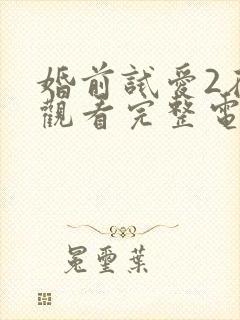 婚前試愛2
觀看完整電
冕璽葉